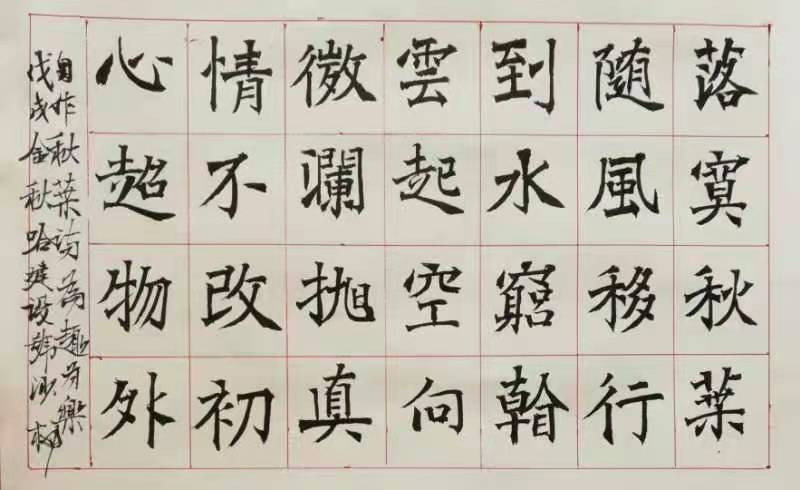 落寞秋葉
随風移行
到水窮看
雲起空向
微瀾抛真
情不改初
心超物外
自作秋葉诗為趣為樂
戊戌金秋哈建设韩